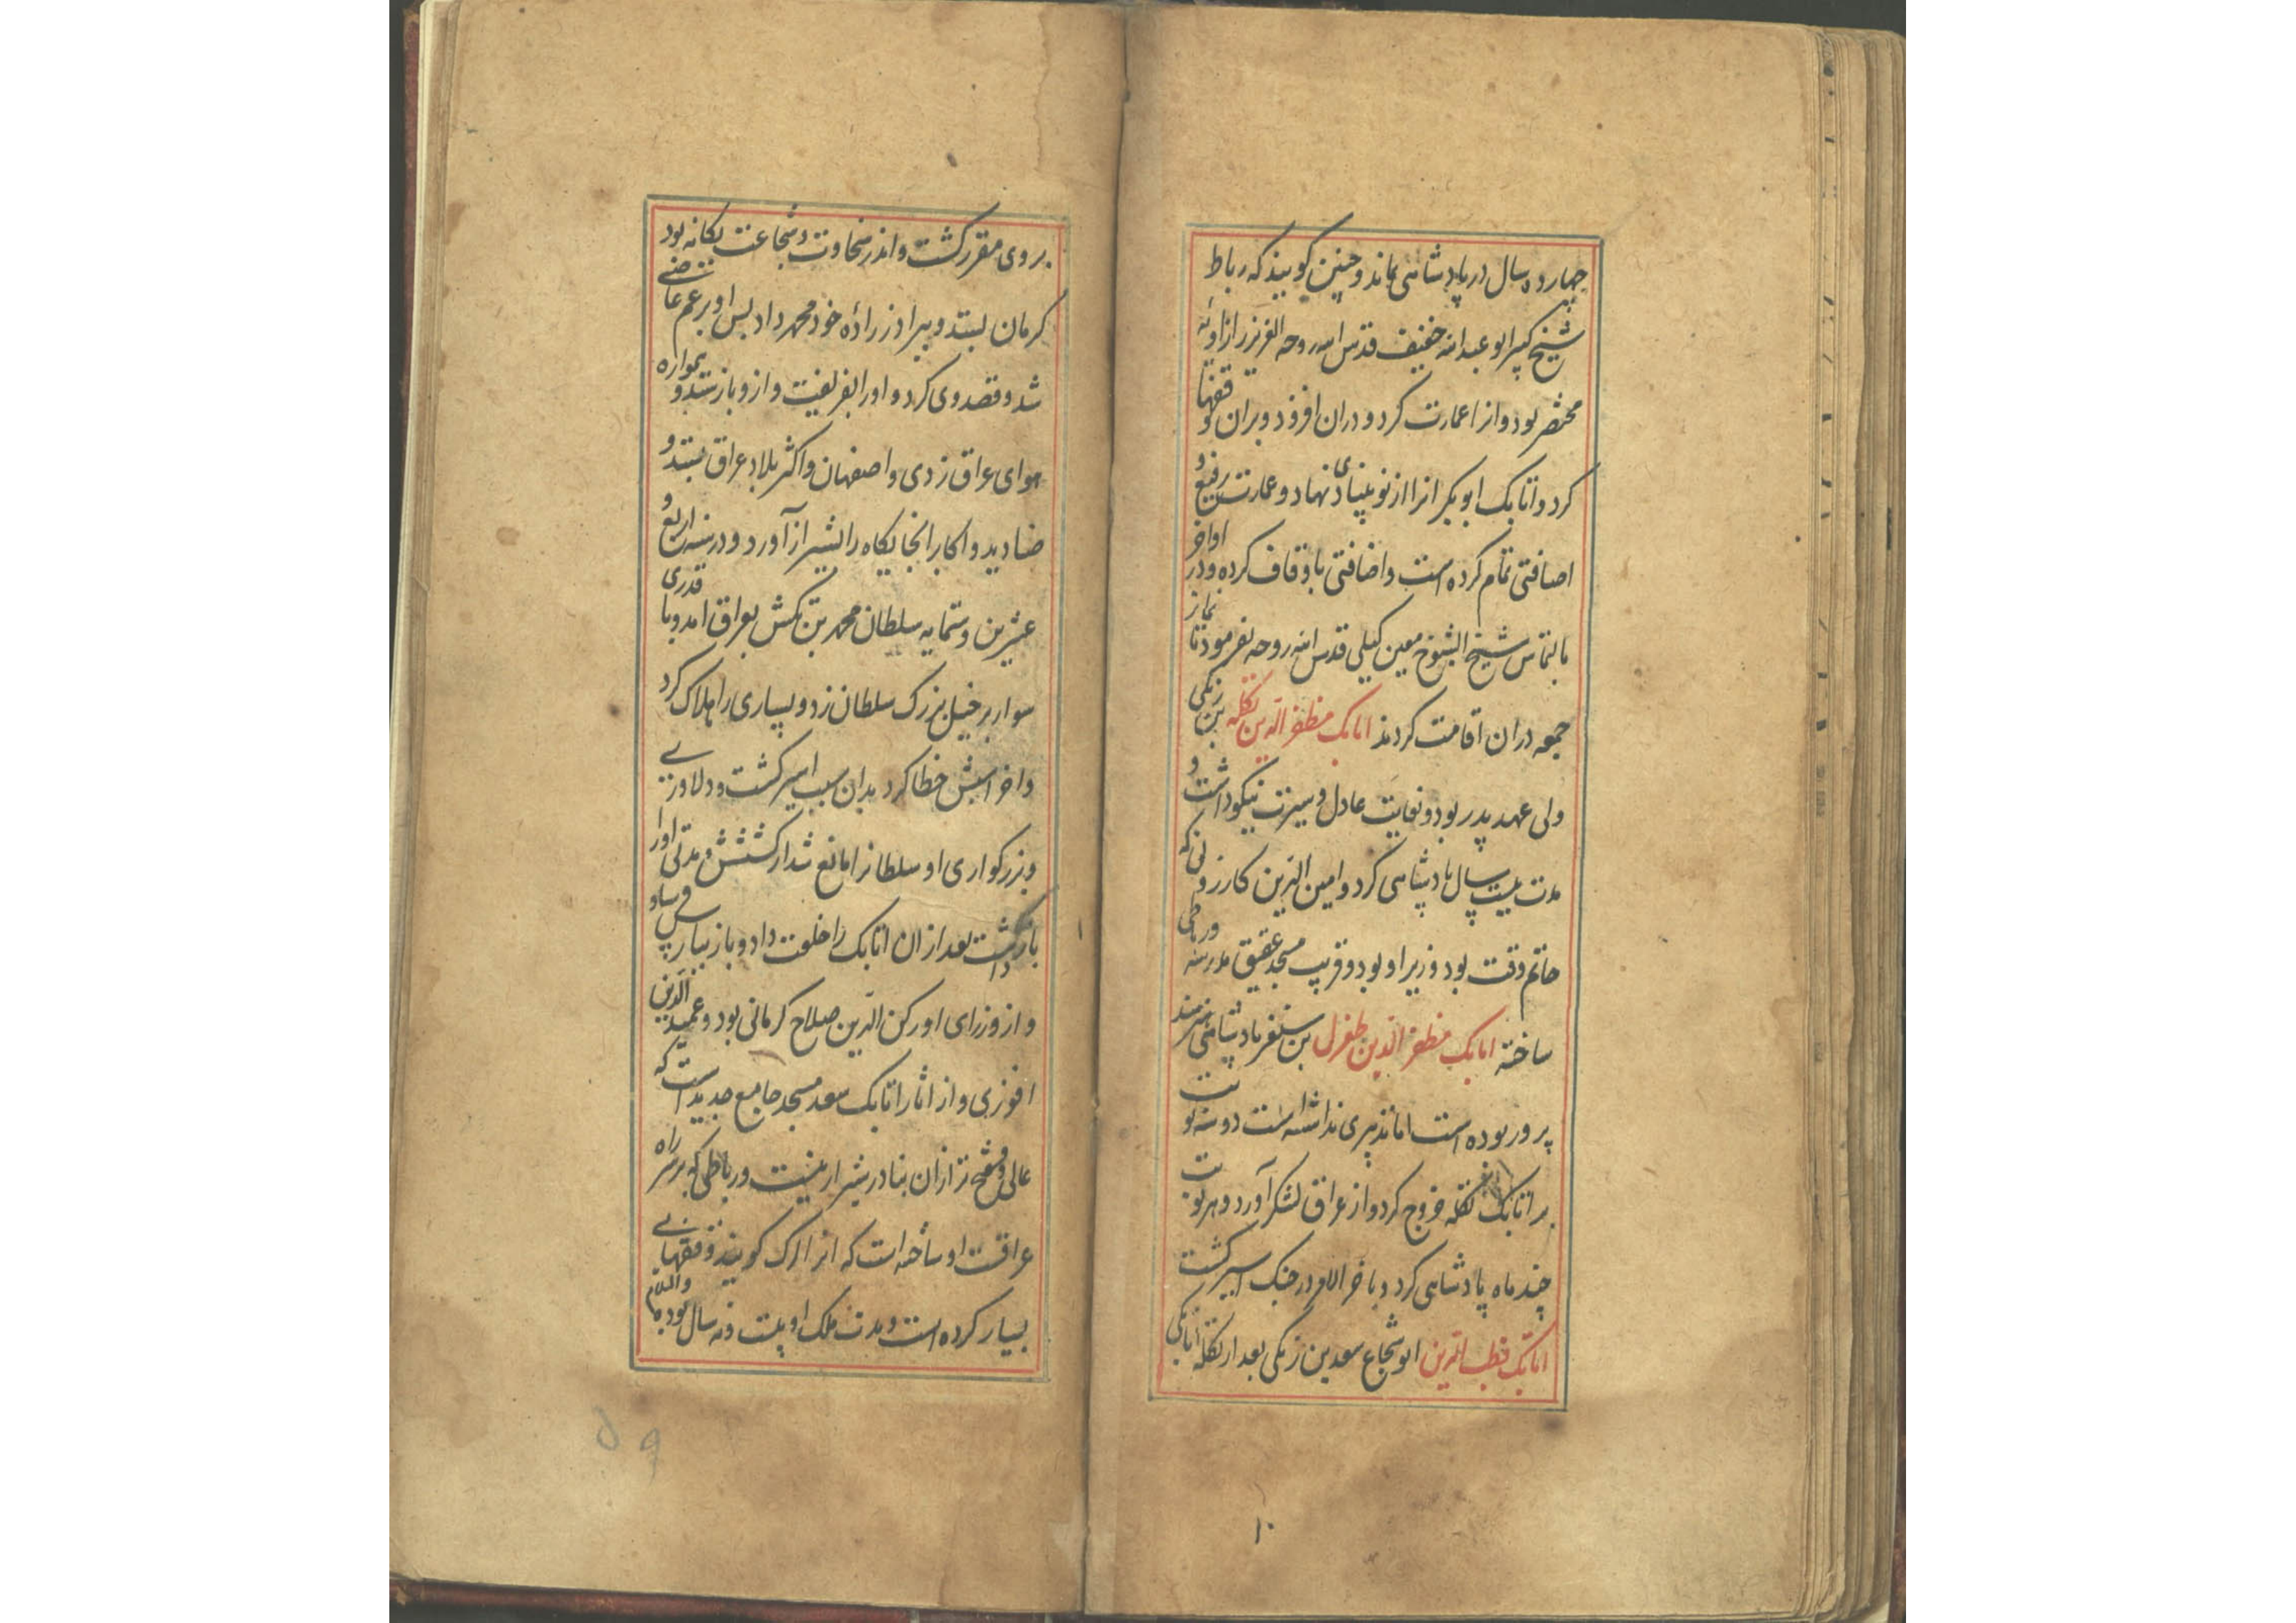 چهارده سال در پادشاهی بماند و چنین کویند که رباط
شیخ کبیر ابو عبد الله خفیف قدس الله روحه العزیز را زاویه
مختصر بود و از اعمارت کرد و دران افزود و بران وقفها
کرد و اتابک ابو بکر انرا از نو بنیادی نهاد و عمارت رفیع و
اضافتی تمام کرده است و اضافتی باوقاف کرده و در اواخر
بالتماس شیخ الشیوخ معین کیلی قدس الله روحه بفرمود تا نماز
جمعه دران اقامت کردند اتابک مظفر الدین تکله بن زنکی
ولی عهد پدر بود و بغایت عادل و سیرت نیکو داشت و
مدت بیست سال پادشاهی کرد و امین الدین کازرونی که
حاتم وقت بود وزیر او بود و قریب مسجد عتیق مدرسه و رباطی
ساخته اتابک مظفر الدین طغرل بن سنقر پادشاهی هنرمند
پرور بوده است اما تدبیری نداشته است دو سه نوبت
بر اتابک تکله خروج کرد و از عراق لشکر آورد و هر نوبت
چند ماه پادشاهی کرد و باخر الامر در جنک اسیر کشت
اتابک قطب الدین ابو شجاع سعد بن زنکی بعد از تکله اتابکی
۱۰
بروی مقرر کشت و اندر سخاوت و شجاعت یکانه بود
کرمان بستد و ببرادر زاده خود محمد داد پس او بر عم عاصی
شد و قصد وی کرد و او را بفریفت و ازو باز ستد و همواره
هوای عراق زدی و اصفهان و اکثر بلاد عراق بستد و
صنادید و اکابر انجایکاه را بشیراز آورد و در سنه اربع و
عشرین و ستمایه سلطان محمد بن تکش بعراق امد و با قدری
سوار بر خیل بزرک سلطان زد و بسیاری را هلاک کرد
و اخر اسبش خطا کرد بدان سبب اسیر کشت و دلاوری
و بزرکواری او سلطانرا مانع شد از کشتنش و مدتی او را
باز داشت بعد از ان اتابک را خلعت داد و باز بپارس فرستاد
و از وزرای او رکن الدین صلاح کرمانی بود و عمید الدین
افوزی و از اثار اتابک سعد مسجد جامع جدید است که
عالی و مفتح تر ازان بنا در شیراز نیست و رباطی که بر سر راه
عراقست او ساخته است که انرا ارک کویند و وقفهای
بسیار کرده است و مدت ملک او بیست و نه سال بود والسلام